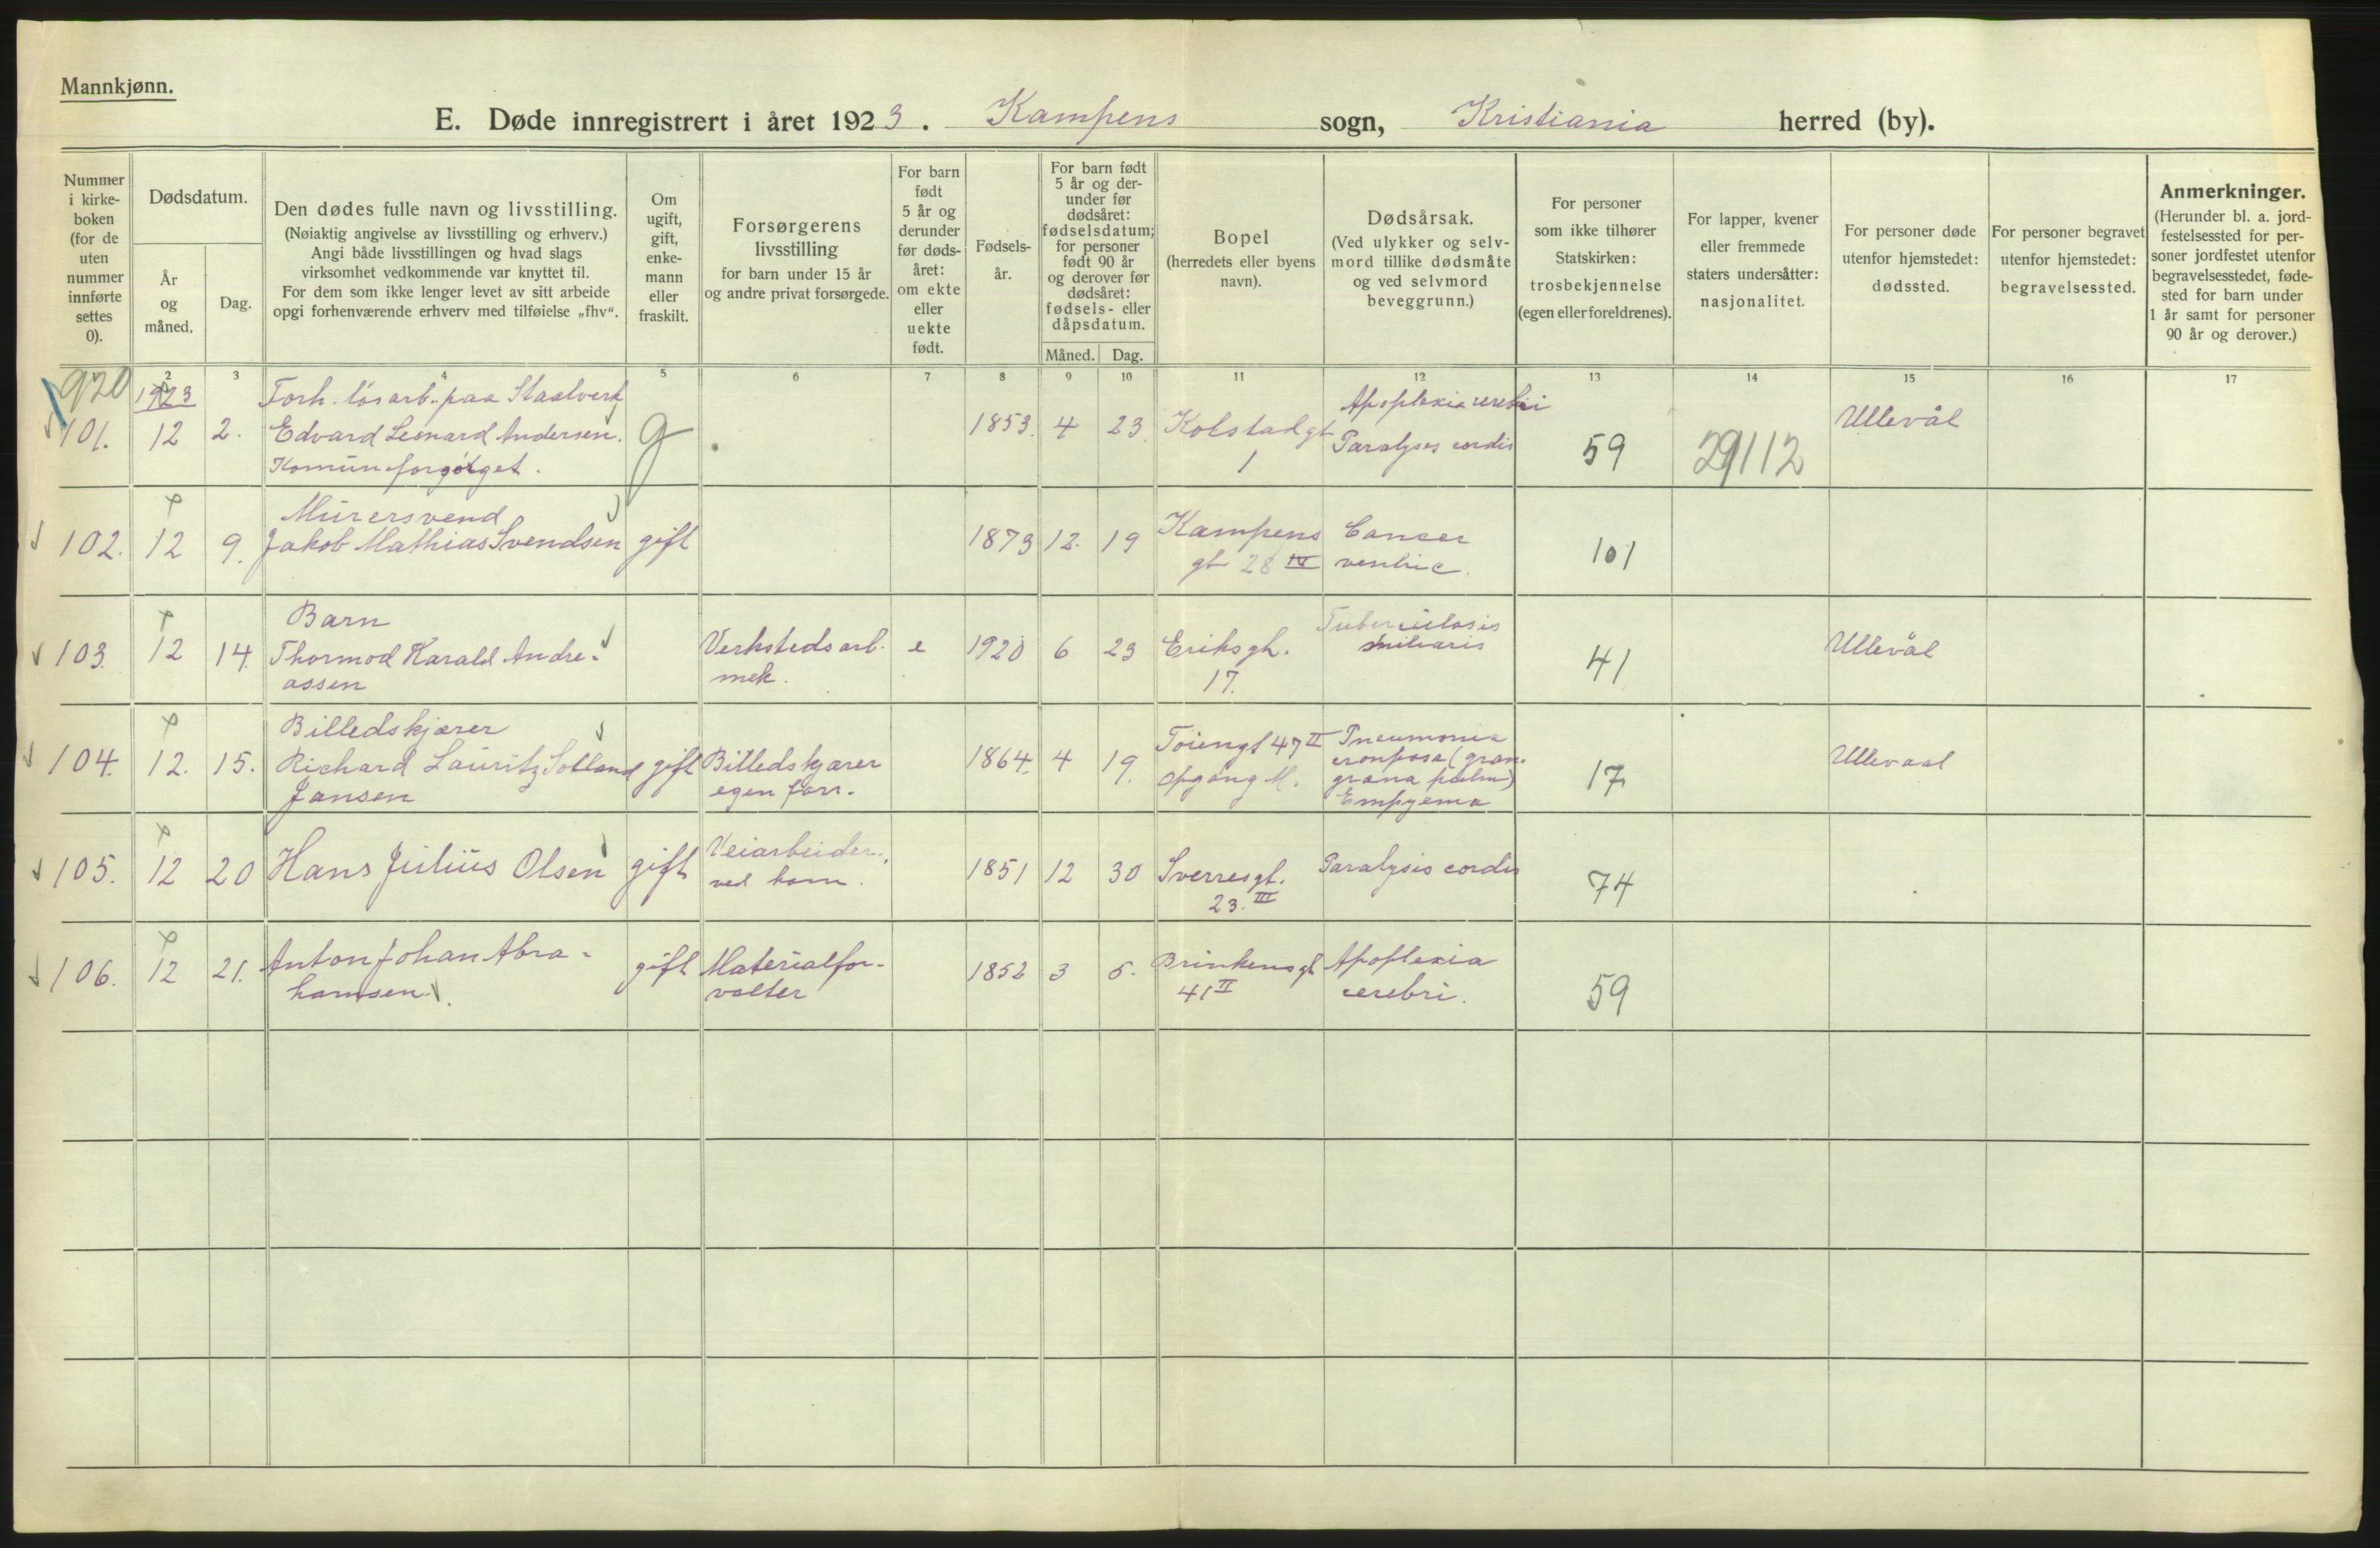 Mannkjønn.
E. Døde innregistrert i året 1923. Kampens sogn, Kristiania herred (by).
Nummer i kirke-boken (for de uten nummer innførte settes 0).
Dødsdatum.
År og måned.
Dag.
Den dødes fulle navn og livsstilling.
(Nøiaktig angivelse av livsstilling og erhverv.)
Angi både livsstillingen og hvad slags
virksomhet vedkommende var knyttet til.
For dem som ikke lenger levet av sitt arbeide
opgi forhenværende erhverv med tilføielse „fhv“.
Om ugift, gift, enke-mann eller fraskilt.
Forsørgerens livsstilling
for barn under 15 år
og andre privat forsørgede.
For barn født 5 år og derunder før døds-året: om ekte eller uekte født.
Fødsels-år.
For barn født 5 år og der-under før dødsåret: fødselsdatum; for personer født 90 år og derover før dødsåret: fødsels- eller dåpsdatum.
Måned. Dag.
Bopel
(herredets eller byens navn).
Dødsårsak.
(Ved ulykker og selv-mord tillike dødsmåte og ved selvmord beveggrunn.)
For personer som ikke tilhører Statskirken: trosbekjennelse (egen eller foreldrenes).
For lapper, kvener eller fremmede staters undersåtter: nasjonalitet.
For personer døde utenfor hjemstedet: dødssted.
For personer begravet utenfor hjemstedet: begravelsessted.
Anmerkninger.
(Herunder bl. a. jord-festelsessted for per-soner jordfestet utenfor begravelsesstedet, føde-sted for barn under 1 år samt for personer 90 år og derover.)
2 3 4 5 6 7 8 9 10 11 12 13 14 15 16 17
920 1923 Forh. løsarb. paa Staalverk Apoplexia cerebri
101. 12 2. Edvard Leonard Andersen. g 1853. 4 23. Kolstadgt 1 Paralyses cordis 59 29112 Ullevål
Komuneforsørget.
Murersvend
102. 12 9. Jakob Mathias Svendsen gift 1873 12. 19 Kampens gt 28 IV Cancer ventric. 101
Barn
103. 12 14. Thormod Harald Andre-assen Verkstedsarb. mek. e 1920 6 23 Eriksgt. 17. Tuberculosis miliaris 41 Ullevål
Billedskjærer
104. 12. 15. Richard Lauritz Solland Jansen gift Billedskjærer egen forr. 1864. 4 19. Toiengt 47 II opgang M. Pneumonia crouposa (gran-græna pulm) Empyema 17 Ullevaal
105. 12 20 Hans Julius Olsen gift Veiarbeider ved kom. 1851 12 30 Sverresgt. 23. III Paralysis cordis 74
106. 12 21. Anton Johan Abra-hamsen. gift Materialfor-valter 1852 3 5. Brinkensgt 41 II Apoplexia cerebri. 59